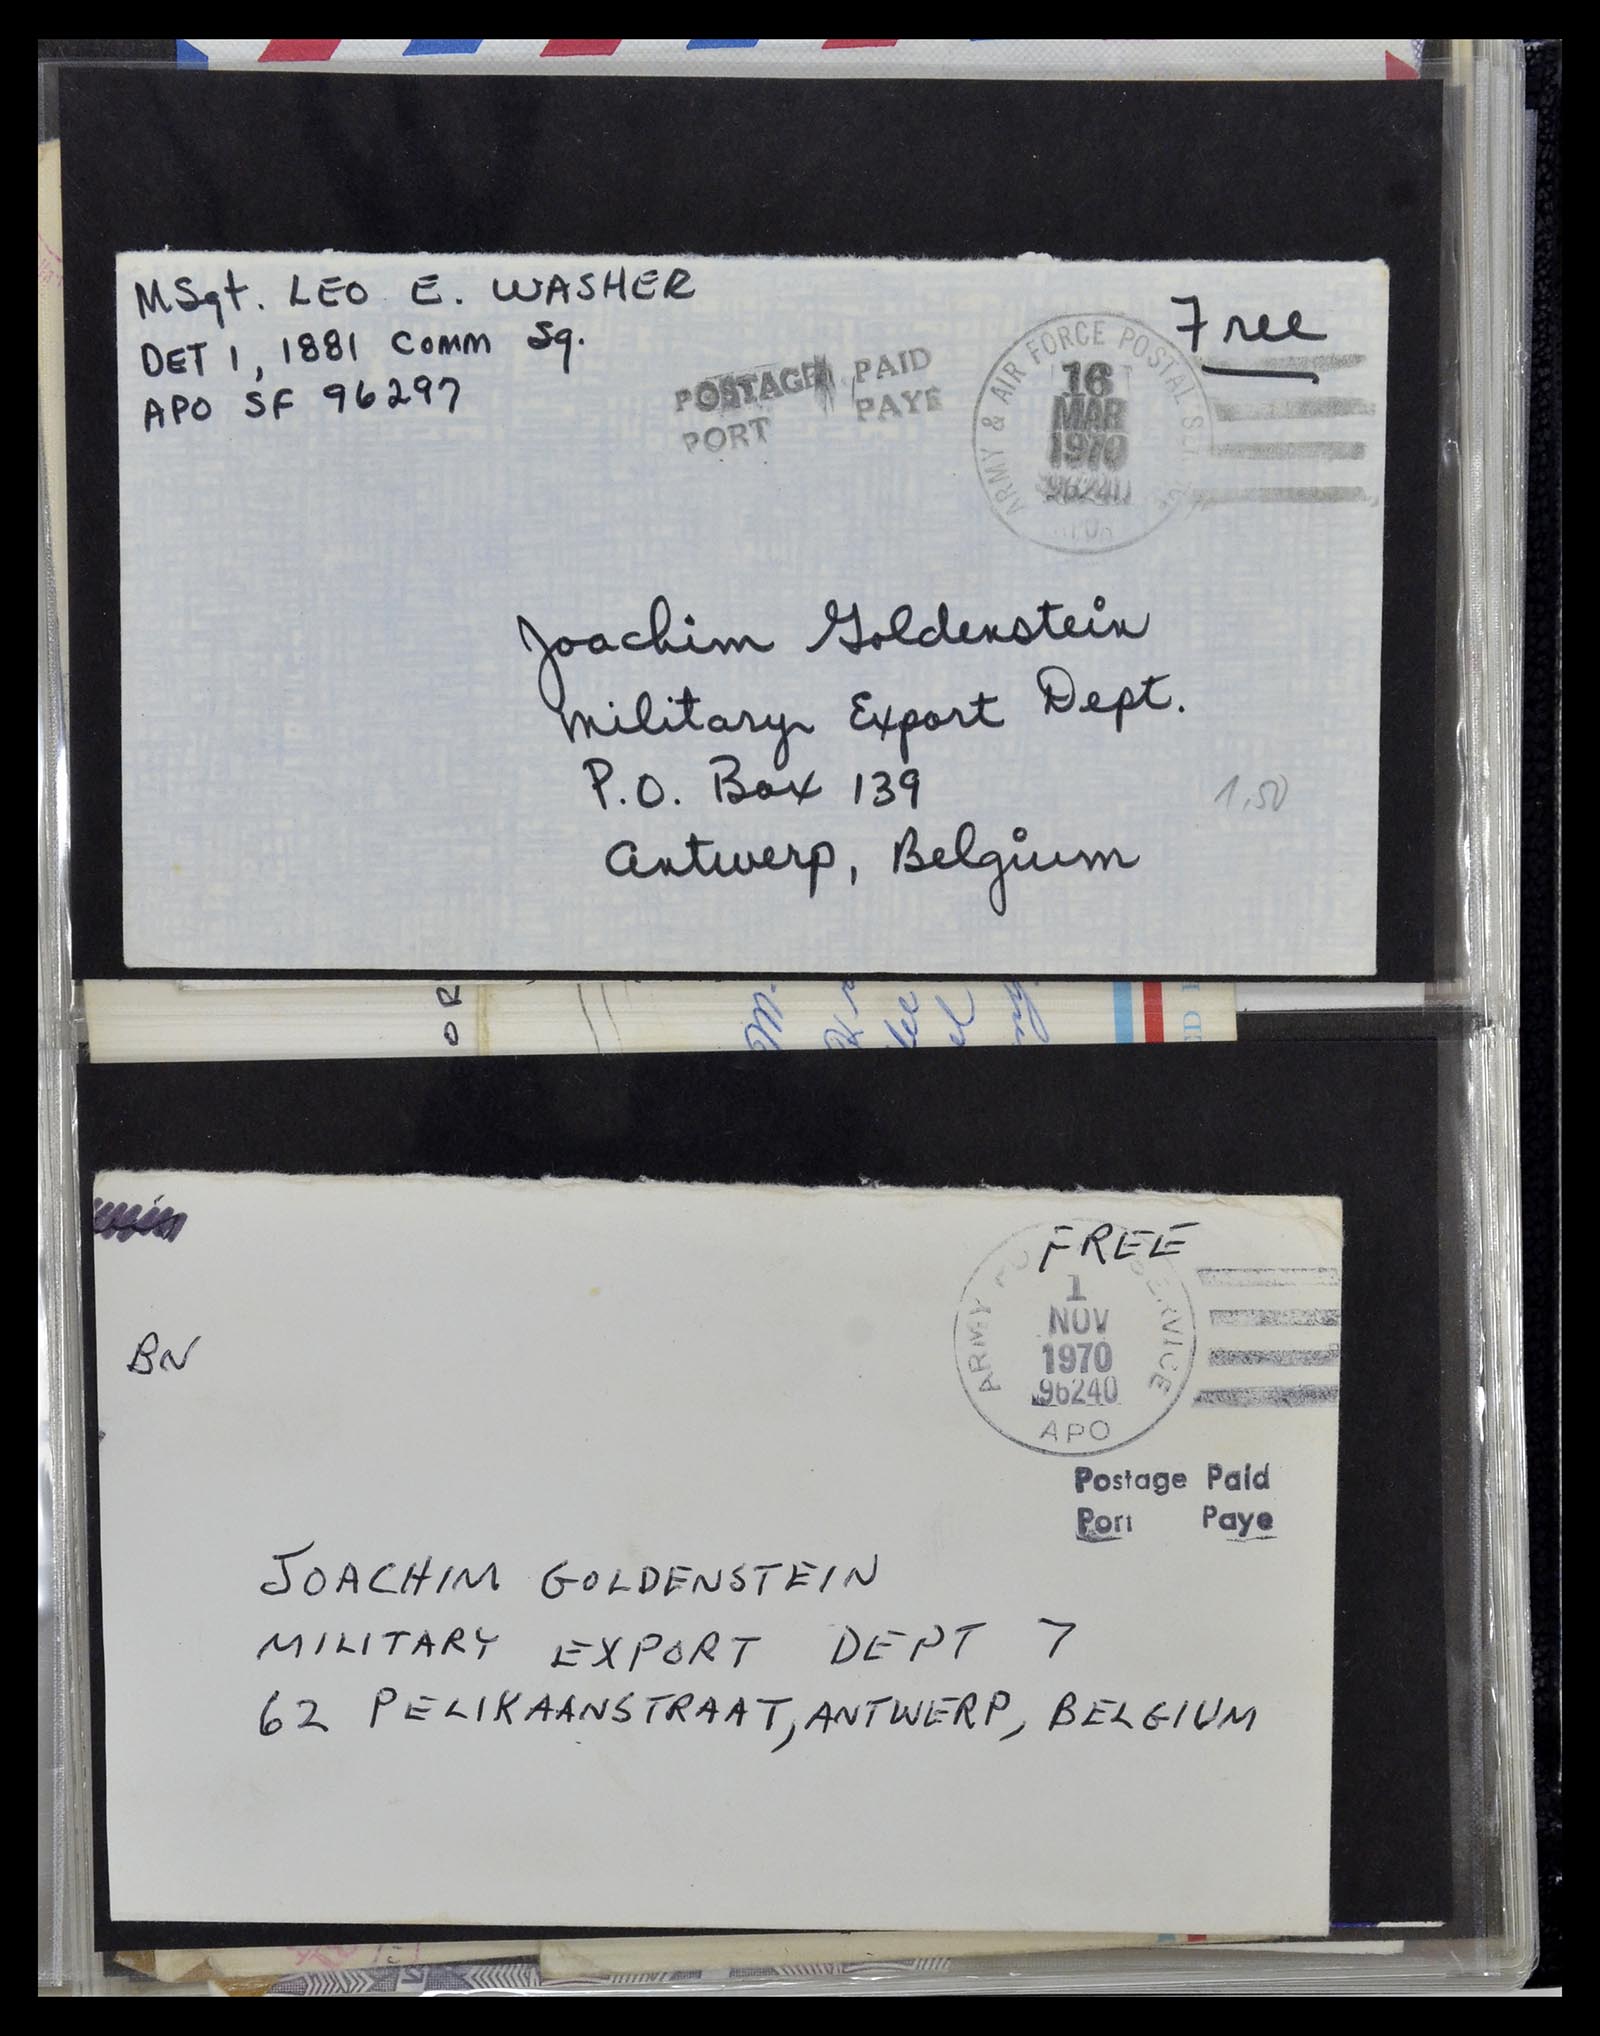 MSgt. LEO E. WASHER
DET 1, 1881 COMM Sq.
APO SF 96297
Free
POSTAGE PAID
PORT PAYE
ARMY & AIR FORCE POSTAL
16
MAR
1970
96240
Joachim Goldenstein
Military Export Dept.
P.O. Box 139
Antwerp, Belgium
1,50
OR
FREE
ARMY SERVICE
1
NOV
1970
96240
APO
BN
Postage Paid
Port Paye
JOACHIM GOLDENSTEIN
MILITARY EXPORT DEPT 7
62 PELIKAANSTRAAT, ANTWERP, BELGIUM